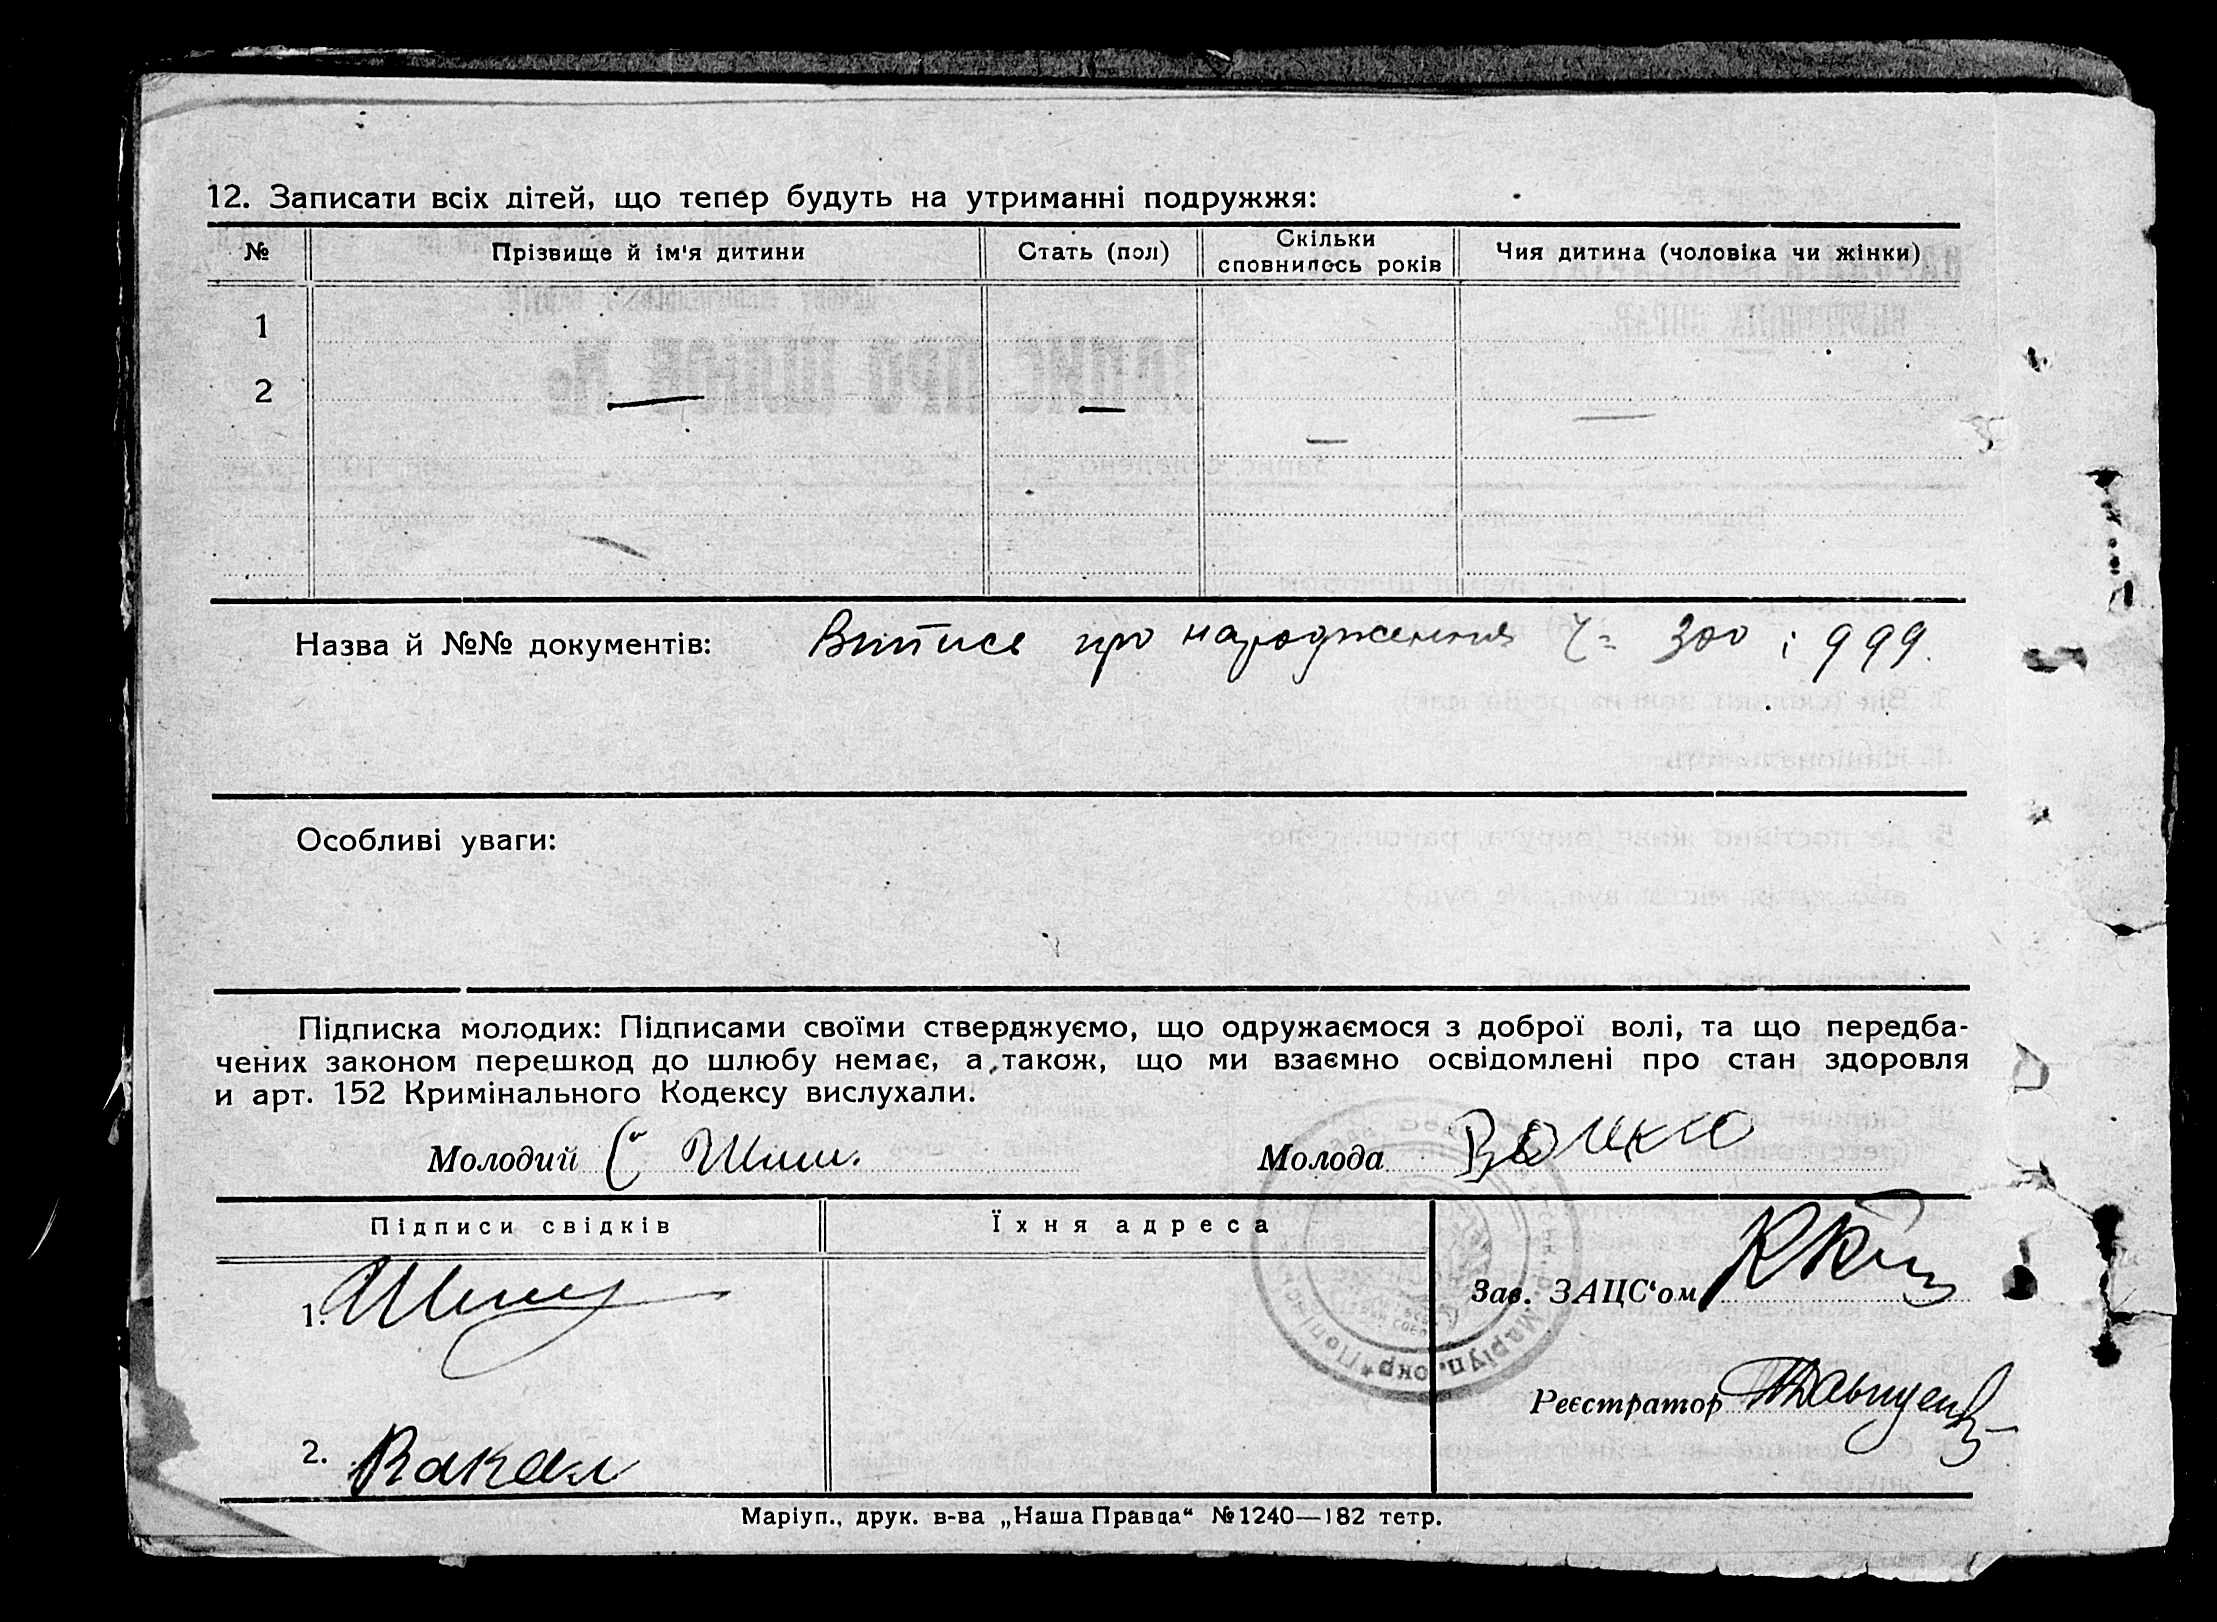 12. Записати всіх дітей, що тепер будуть на утриманні подружжя:
№ Прізвище й ім'я дитини Стать (пол) Скільки сповнилось років Чия дитина (чоловіка чи жінки)
1
2 — — — —
Назва й №№ документів: Витисе про народження Ч= 300 і 999.
Особливі уваги:
Підписка молодих: Підписами своїми стверджуємо, що одружаємося з доброї волі, та що передба-
чених законом перешкод до шлюбу немає, а також, що ми взаємно освідомлені про стан здоровля
и арт. 152 Кримінального Кодексу вислухали.
Молодий Молода
Підписи свідків Їхня адреса
Зав. ЗАЦС'ом
1.
Реєстратор
2.
Маріуп., друк. в-ва „Наша Правда“ № 1240—182 тетр.